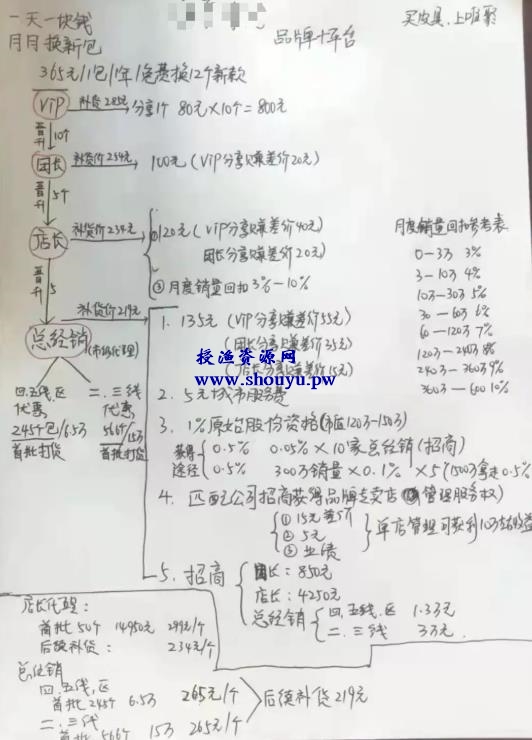 一天一块钱
月月换新包
品牌+平台
买皮具,上唯聚
365元/1包/1年/免费换12个新款
VIP 补货285元 分享1个 80元×10个=800元
晋升 10个
团长 补货价254元 100元(VIP分享赚差价20元)
晋升 5个
店长 补货价234元
①120元(VIP分享赚差价40元)
团长分享赚差价20元)
②月度销量回扣3%-10%
月度销量回扣参考表
0-3万 3%
3-10万 4%
10万-30万 5%
30-60万 6%
60-120万 7%
120万-240万 8%
240万-360万 9%
360万-600 10%
晋升 5
总经销 补货价219元
(市级代理)
1. 135元(VIP分享赚差价55元)
(团长分享赚差价35元)
(店长分享赚差价15元)
授渔资源网
www.shouyu.pw
2. 5元城市服务费
3. 1%原始股份资格(市值120万-150万)
获得途径
0.5% 0.05%×10家总经销(招商)
0.5% 300万销量×0.1% ×5个(1500万拿走0.5%
4. 匹配公司招商获得品牌专卖店 管理服务权)
①15元差价
②5元
③业绩
单店管理可获利10万的收益
5. 招商
团长:850元
店长:4250元
总经销
四.五线.区 1.3万元
二.三线 3万元.
四.五线.区
优惠
245个包/6.5万
首批打货
二.三线
优惠
566个/15万
首批打货
店长代理:
首批50个 14950元 299元/个
后续补货: 234元/个
总经销
四.五线.区
首批245个 6.5万 265元/个
二.三线
首批566个 15万 265元/个
后续补货219元